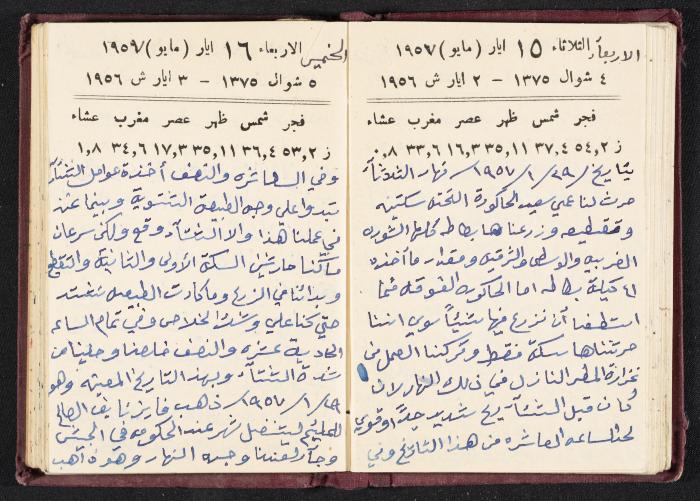 الاربعاء الثلاثاء ١٥ ايار (مايو) ١٩٥٧
٤ شوال ١٣٧٥ – ٢ ايار ش ١٩٥٦
فجر شمس ظهر عصر مغرب عشاء
ز ٥٤,٢ ٣٧,٤ ٣٥,١١ ١٦,٣ ٣٣,٦ ٠,٨
بتاريخ ٢٩/١/١٩٥٧ نهار الثلاثاء
حرث لنا عمي سعيد الحاكورة التحته سكتين
وقطيعه وزرعناها بطاطه كلها الشوره
الغربيه والوسطى والشرقيه ومقدار ما أخذه
٤١ كيلة بطاطه اما الحاكوره الفوقه فما
استطعنا أن نزرع فيها شيئاً سوى اننا
حرثناها سكة فقط وتركنا العمل في
غزارة المطر النازل في ذلك النهار لان
كان قبل الشتاء ريح شديد جداً وقوي
لحد الساعه العاشره من هذا التاريخ وفي
الخميس الاربعاء ١٦ ايار (مايو) ١٩٥٧
٥ شوال ١٣٧٥ – ٣ ايار ش ١٩٥٦
فجر شمس ظهر عصر مغرب عشاء
ز ٥٣,٢ ٣٦,٤ ٣٥,١١ ١٧,٣ ٣٤,٦ ١,٨
وفي العاشره والنصف أخذة عوامل الشتاء
تبدوا على وجه الطبيعة الشتوية وبينما نحن
في عملنا هذا والا الشتاء وقع ولكن سرعان
ما كنا حارثين السكة الأولى والثانية والتقطيع
وبدأنا في الزرع وما كادت الطبيعه تشتد
حتى كنا على وشك الخلاص وفي تمام الساعه
الحادية عشره والنصف خلصنا وجينا من
شدة الشتاء وبهذ التاريخ المعين وهو
٢٩/١/١٩٥٧ ذهب فايز نايف الصالح
ليشتغل شهر عند الحكومه في الجيش
وجاء لعندنا وجبه النهار وهو ذاهب